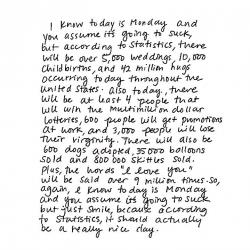 I know today is Monday and
you assume its going to suck,
but according to Statistics, there
will be over 5,000 weddings, 10,000
Childbirths, and 42 million hugs
occurring today throughout the
united States. Also today, there
will be at least 4 people that
will win the Multimillion dollar
lotteries, 600 people will get promotions
at work, and 3,000 people will lose
their virginity. There will also be
600 dogs adopted, 35000 balloons
sold and 800 000 Skittles sold.
Plus, the words "I love you"
will be said over 9 million times. So,
again, I know today is Monday
and you assume its going to suck
but just smile, because according
to Statistics, it should actually
be a really nice day.